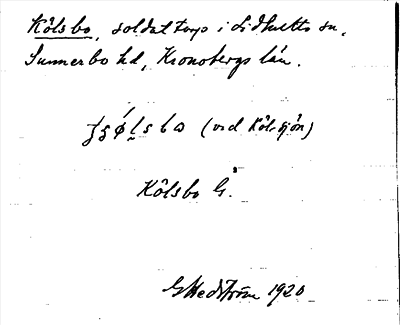 Kölsbo, soldattorp i Lidhults sn,
Sunnerbo hd, Kronobergs län.
(vid Kölsjön)
Kölsbo G.
GHedström 1920